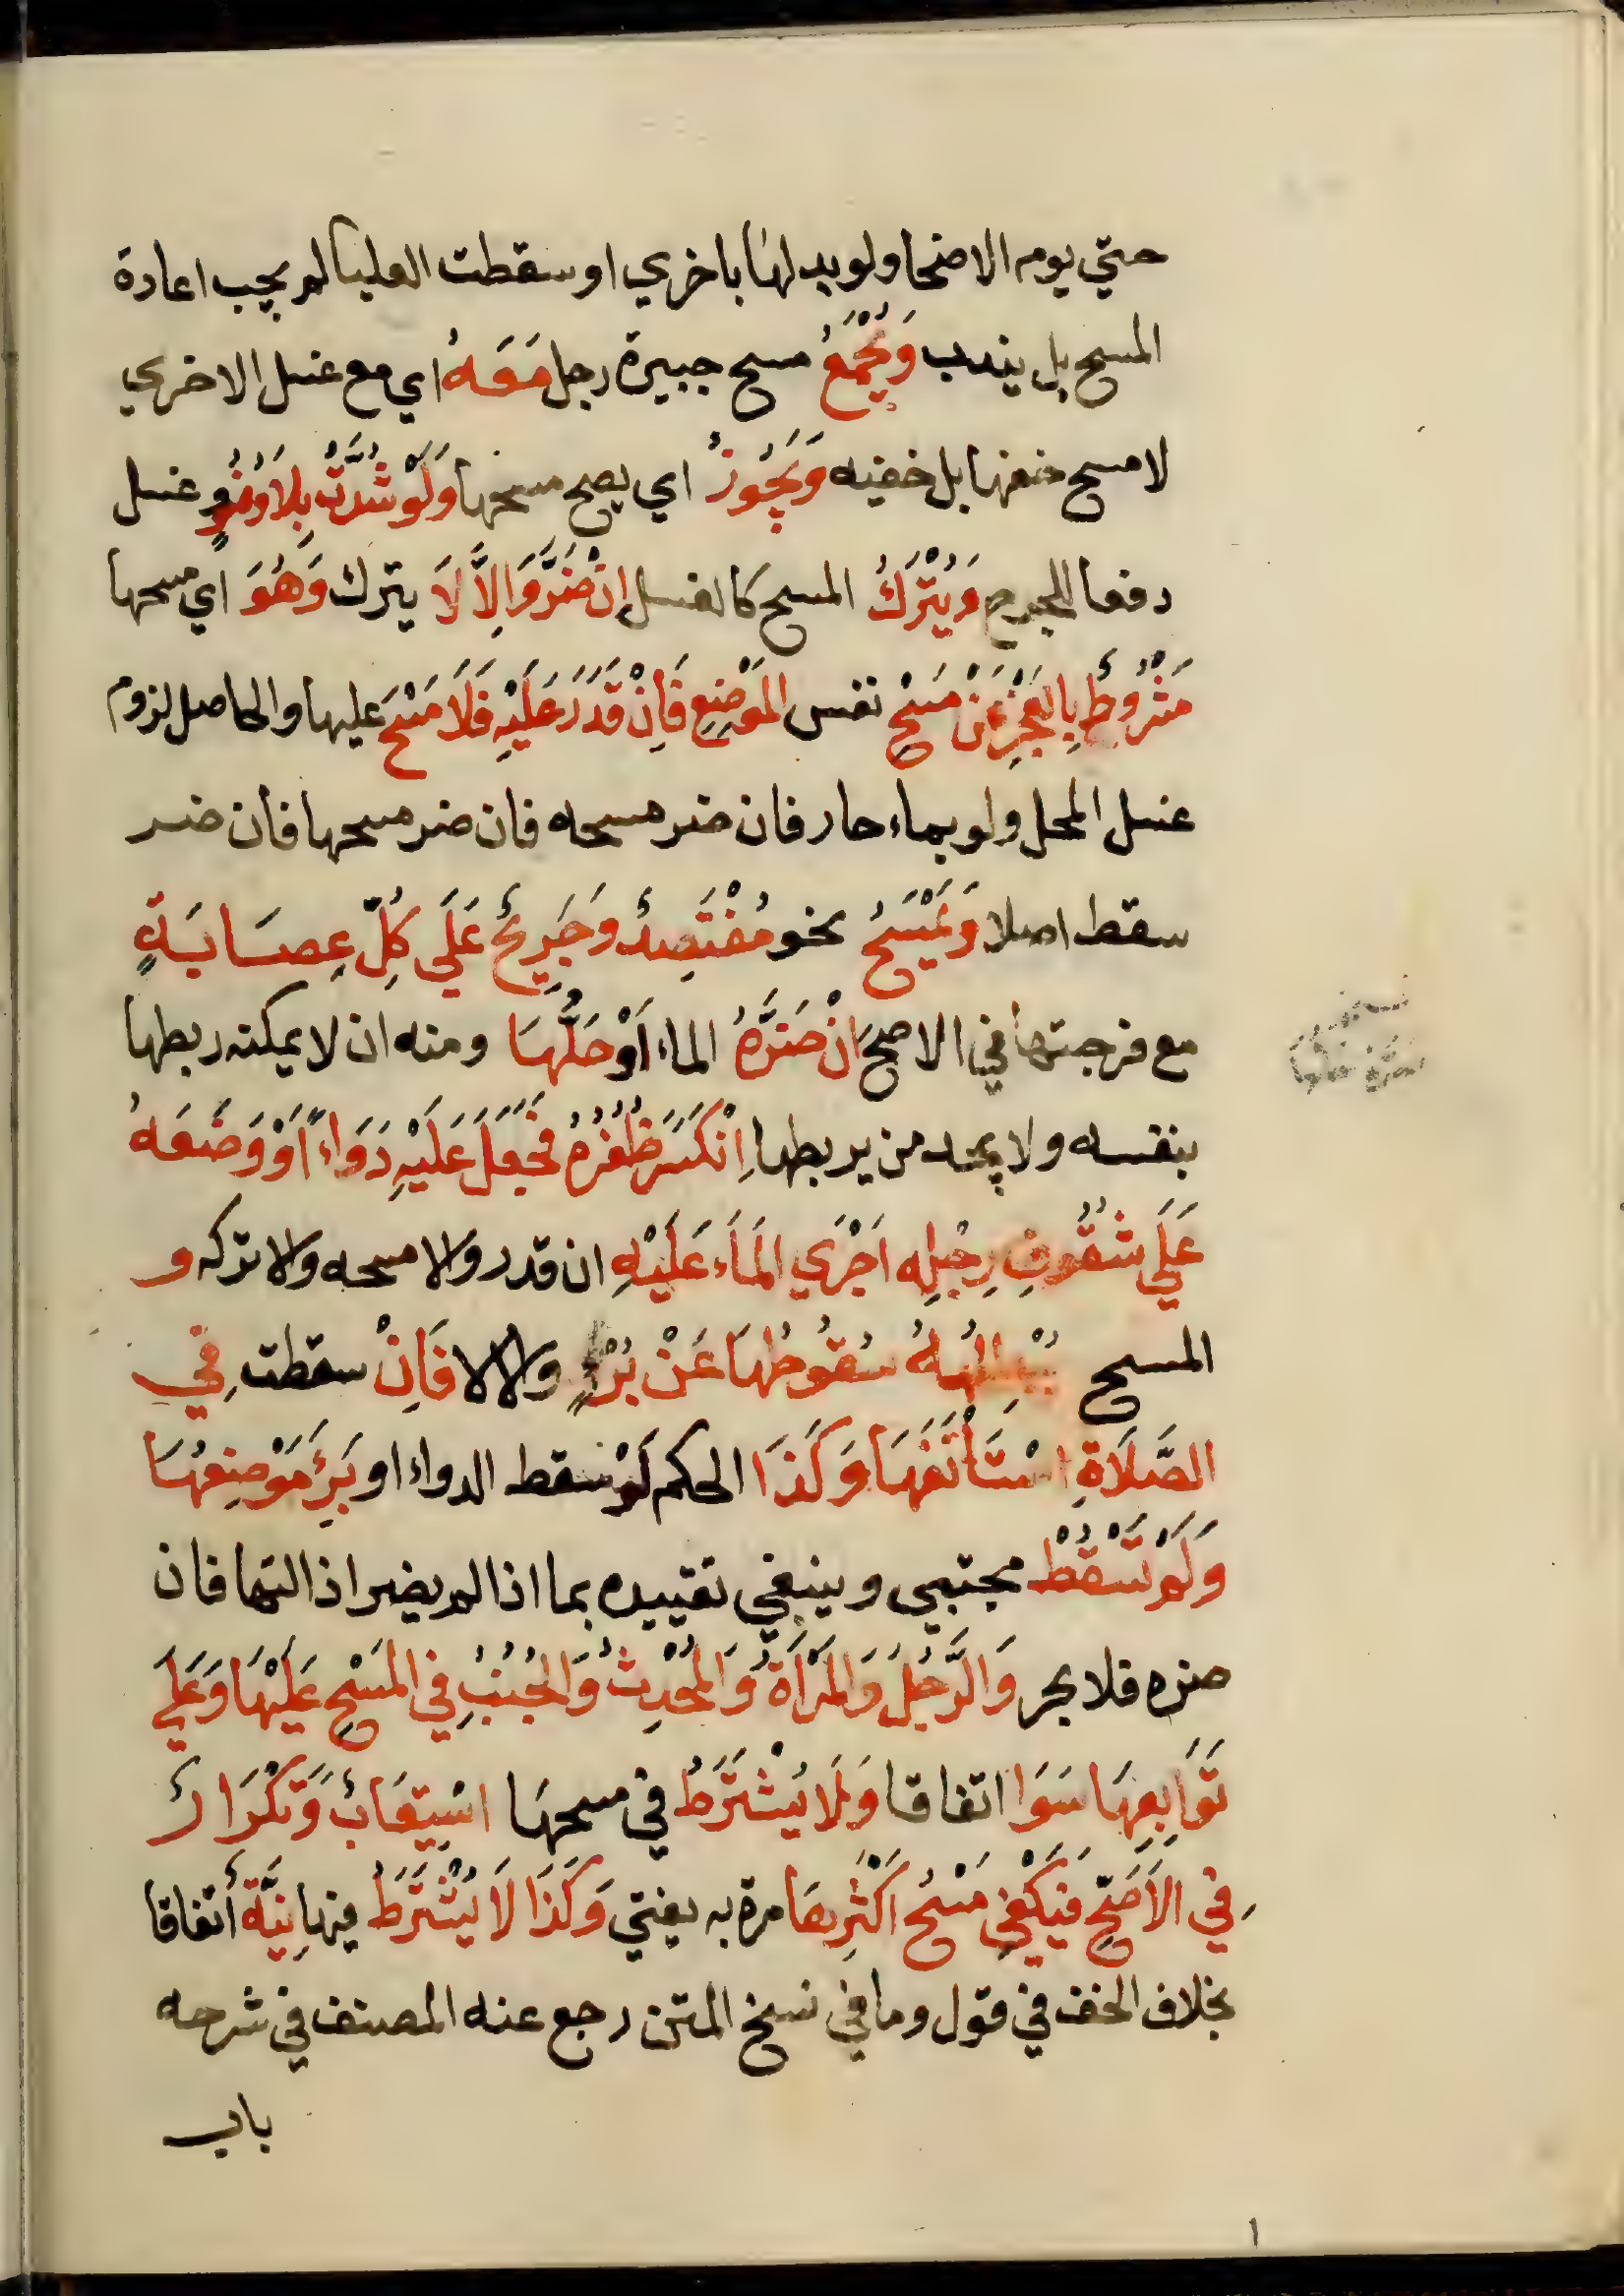 حتي يوم الاضحا ولو بدلها باخري او سقطت العليا لم يجب اعادة
المسح بل يندب وَيُجْمَعُ مسح جبيرة رجل مَعَهُ اي مع غسل الاخري
لا مسح خفها بل خفيه وَيَجُوزُ اي يصح مسحها وَلَوْ شُدَّتْ بِلَا وُضُوٍ وغسل
دفعا للحرج وَيُتْرَكُ المسح كالغسل إِنْ ضَرَّ وَاِلَّا لَا يترك وَهُوَ اي مسحها
مَشْرُوطٌ بِالعَجْزِ عَنْ مَسْحِ نفس المَوْضِعِ فَاِنْ قَدَرَ عَلَيْهِ فَلَا مَسْحَ عليها والحاصل لزوم
غسل المحل ولو بماء حار فان ضر مسحه فان ضر مسحها فان ضر
سقط اصلا وَيَمْسَحُ نحو مُفْتَصِدٌ وَجَرِيحٌ عَلَى كُلِّ عِصَابَةٍ
مع فرجتها في الاصح اِنْ ضَرَّهُ الماء اَوْ حَلُّهَا ومنه ان لا يمكنه ربطها
بنفسه ولا يجد من يربطها اِنْكَسَرَ ظُفْرُهُ فَجَعَلَ عَلَيْهِ دَوَاءً اَوْ وَضَعَهُ
عَلَي شُقُوقِ رِجْلِه اَجْرَي المَاءَ عَلَيْهِ ان قدر والا مسحه والا تركه و
المسح يُبْطِلُهُ سُقُوطُهَا عَنْ بُرْءٍ والا لا فَاِنْ سقطت فِي
الصَّلَاةِ اسْتَأْنَفَهَا وَكَذَا الحكم لَوْ سقط الدواء او بَرِئَ مَوْضِعُهَا
وَلَمْ تَسْقُطْ مجتبي وينبغي تقييده بما اذا لم يضر اذالتها فان
ضره فلا بحر وَالرَّجُلُ وَالمَرْاَةُ وَالمُحْدِثُ وَالجُنُبُ فِي المَسْحِ عَلَيْهَا وَعَلَي
تَوَابِعِهَا سَوَا اتفاقا وَلَا يُشْتَرَطُ في مسحها اسْتِيعَابٌ وَتَكْرَارٌ
فِي الاَصَحِّ فَيَكْفِي مَسْحُ اَكْثَرِهَا مرة به يفتي وَكَذَا لَا يُشْتَرَطُ فيها نِيَّةٌ اتفاقا
بخلاف الخف في قول وما في نسخ المتن رجع عنه المصنف في شرحه
باب
١